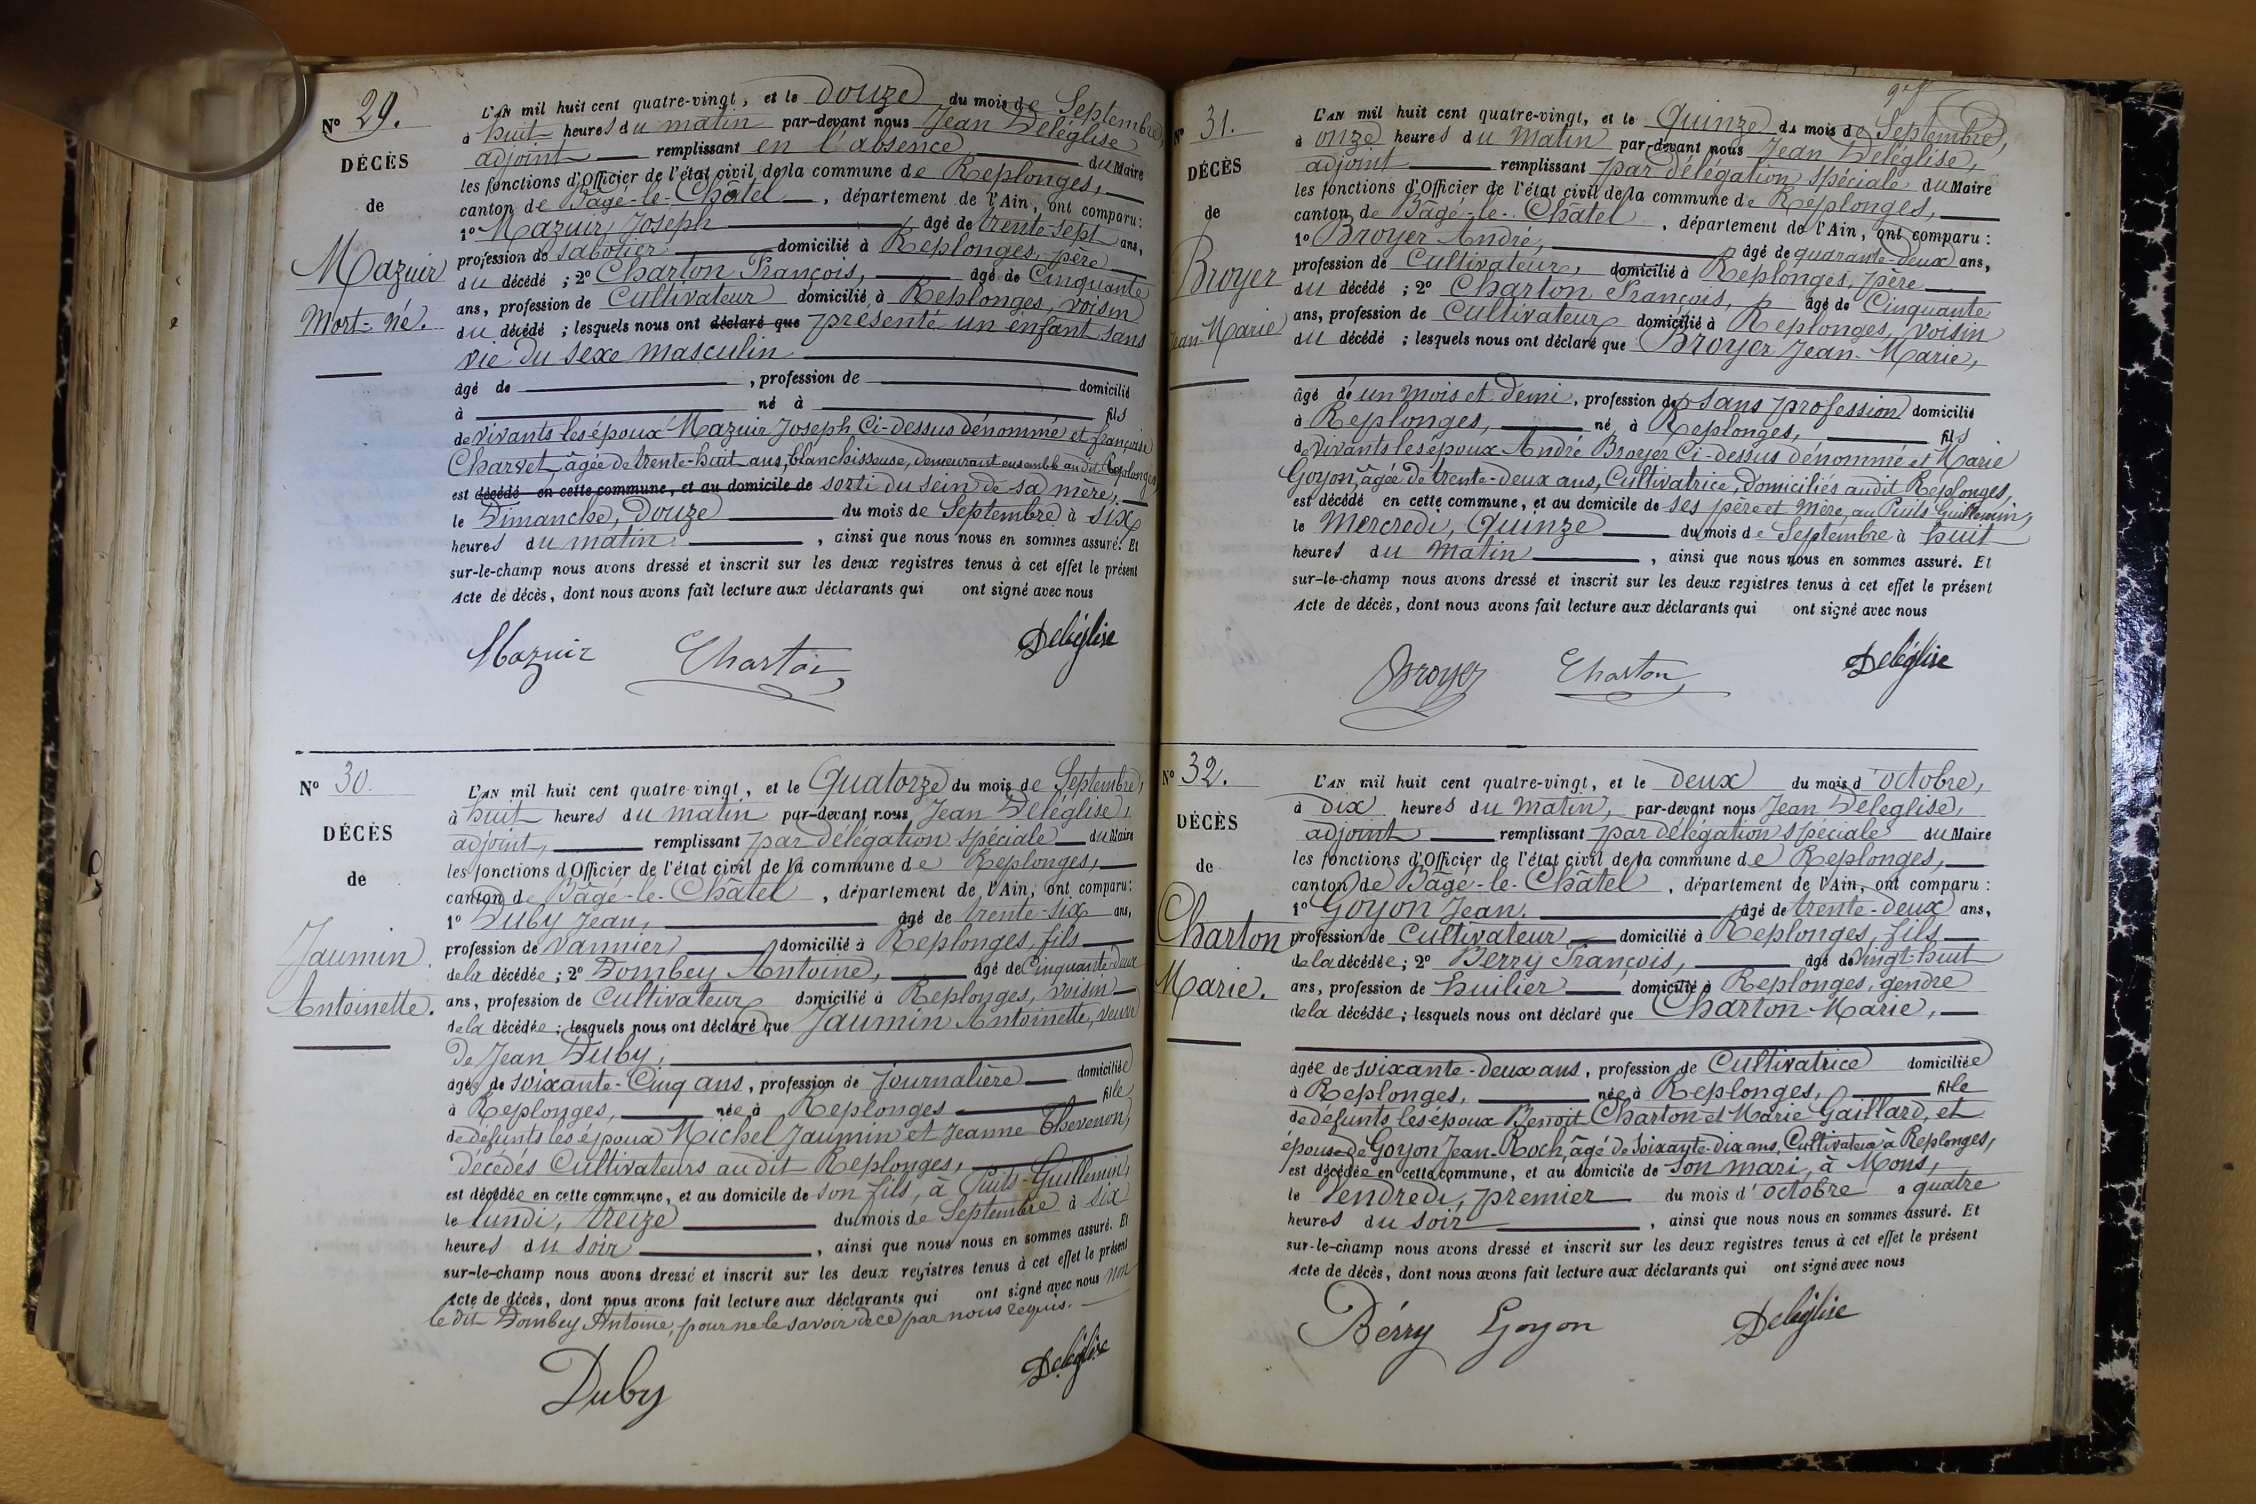 Nº 29.
DÉCÈS
de
Mazuir
Mort-né.
L'AN mil huit cent quatre-vingt, et le douze du mois de Septembre,
à huit heures du matin par-devant nous Jean Deléglise
adjoint remplissant en l'absence du Maire
les fonctions d'Officier de l'état civil de la commune de Replonges,
canton de Bâgé-le-Châtel, département de l'Ain, ont comparu :
1º Mazuir Joseph âgé de trente-sept ans,
profession de sabotier domicilié à Replonges, père
du décédé ; 2º Charton François, âgé de Cinquante
ans, profession de Cultivateur domicilié à Replonges, voisin
du décédé ; lesquels nous ont déclaré que présenté un enfant sans
vie du sexe masculin
âgé de , profession de domicilié
à né à fils
de vivants les époux Mazuir Joseph Ci-dessus dénommé et françoise
Charvet, âgée de trente-huit ans, blanchisseuse, demeurant ensemble audit Replonges,
est décédé en cette commune, et au domicile de sorti du sein de sa mère,
le Dimanche, douze du mois de Septembre à six
heures du matin , ainsi que nous nous en sommes assuré. Et
sur-le-champ nous avons dressé et inscrit sur les deux registres tenus à cet effet le présent
Acte de décès, dont nous avons fait lecture aux déclarants qui ont signé avec nous
Mazuir Charton Deléglise
Nº 30.
DÉCÈS
de
Jaumin
Antoinette.
L'AN mil huit cent quatre-vingt, et le Quatorze du mois de Septembre,
à huit heures du matin par-devant nous Jean Deléglise,
adjoint, remplissant par délégation spéciale du Maire
les fonctions d'Officier de l'état civil de la commune de Replonges,
canton de Bâgé-le-Châtel, département de l'Ain, ont comparu :
1º Duby Jean, âgé de trente-six ans,
profession de Vannier domicilié à Replonges, fils
de la décédée ; 2º Dombey Antoine, âgé de Cinquante-deux
ans, profession de Cultivateur domicilié à Replonges, voisin
de la décédée ; lesquels nous ont déclaré que Jaumin Antoinette, veuve
de Jean Duby,
âgée de soixante-Cinq ans, profession de Journalière domiciliée
à Replonges, née à Replonges fille
de défunts les époux Michel Jaumin et Jeanne Thevenon,
décédés Cultivateurs audit Replonges,
est décédée en cette commune, et au domicile de son fils, à Puits-Guillemin,
le lundi, treize du mois de Septembre à six
heures du soir , ainsi que nous nous en sommes assuré. Et
sur-le-champ nous avons dressé et inscrit sur les deux registres tenus à cet effet le présent
Acte de décès, dont nous avons fait lecture aux déclarants qui ont signé avec nous non
le dit Dombey Antoine, pour ne le savoir de ce par nous requis.
Duby Deléglise
Nº 31.
DÉCÈS
de
Broyer
Jean-Marie
L'AN mil huit cent quatre-vingt, et le Quinze du mois de Septembre,
à onze heures du matin par-devant nous Jean Deléglise,
adjoint remplissant par délégation spéciale du Maire
les fonctions d'Officier de l'état civil de la commune de Replonges,
canton de Bâgé-le-Châtel, département de l'Ain, ont comparu :
1º Broyer André, âgé de quarante-deux ans,
profession de Cultivateur, domicilié à Replonges, père
du décédé ; 2º Charton François, âgé de Cinquante
ans, profession de Cultivateur domicilié à Replonges, voisin
du décédé ; lesquels nous ont déclaré que Broyer Jean-Marie,
âgé de un mois et demi, profession de sans profession domicilié
à Replonges, né à Replonges, fils
de vivants les époux André Broyer Ci-dessus dénommé et Marie
Goyon, âgée de trente-deux ans, Cultivatrice, domiciliés audit Replonges,
est décédé en cette commune, et au domicile de ses père et mère, au Puits Guillemin,
le Mercredi, Quinze du mois de Septembre à huit
heures du matin , ainsi que nous nous en sommes assuré. Et
sur-le-champ nous avons dressé et inscrit sur les deux registres tenus à cet effet le présent
Acte de décès, dont nous avons fait lecture aux déclarants qui ont signé avec nous
Broyer Charton Deléglise
Nº 32.
DÉCÈS
de
Charton
Marie.
L'AN mil huit cent quatre-vingt, et le deux du mois d'octobre,
à dix heures du matin, par-devant nous Jean Deléglise,
adjoint remplissant par délégation spéciale du Maire
les fonctions d'Officier de l'état civil de la commune de Replonges,
canton de Bâgé-le-Châtel, département de l'Ain, ont comparu :
1º Goyon Jean, âgé de trente-deux ans,
profession de Cultivateur domicilié à Replonges, fils
de la décédée ; 2º Berry François, âgé de Vingt-huit
ans, profession de huilier domicilié à Replonges, gendre
de la décédée ; lesquels nous ont déclaré que Charton Marie,
âgée de soixante-deux ans, profession de Cultivatrice domiciliée
à Replonges, née à Replonges, fille
de défunts les époux Benoit Charton et Marie Gaillard, et
épouse de Goyon Jean-Roch, âgé de Soixante-dix ans, Cultivateur à Replonges,
est décédée en cette commune, et au domicile de son mari, à Mons,
le Vendredi, premier du mois d'octobre à quatre
heures du soir , ainsi que nous nous en sommes assuré. Et
sur-le-champ nous avons dressé et inscrit sur les deux registres tenus à cet effet le présent
Acte de décès, dont nous avons fait lecture aux déclarants qui ont signé avec nous
Bérry Goyon Deléglise